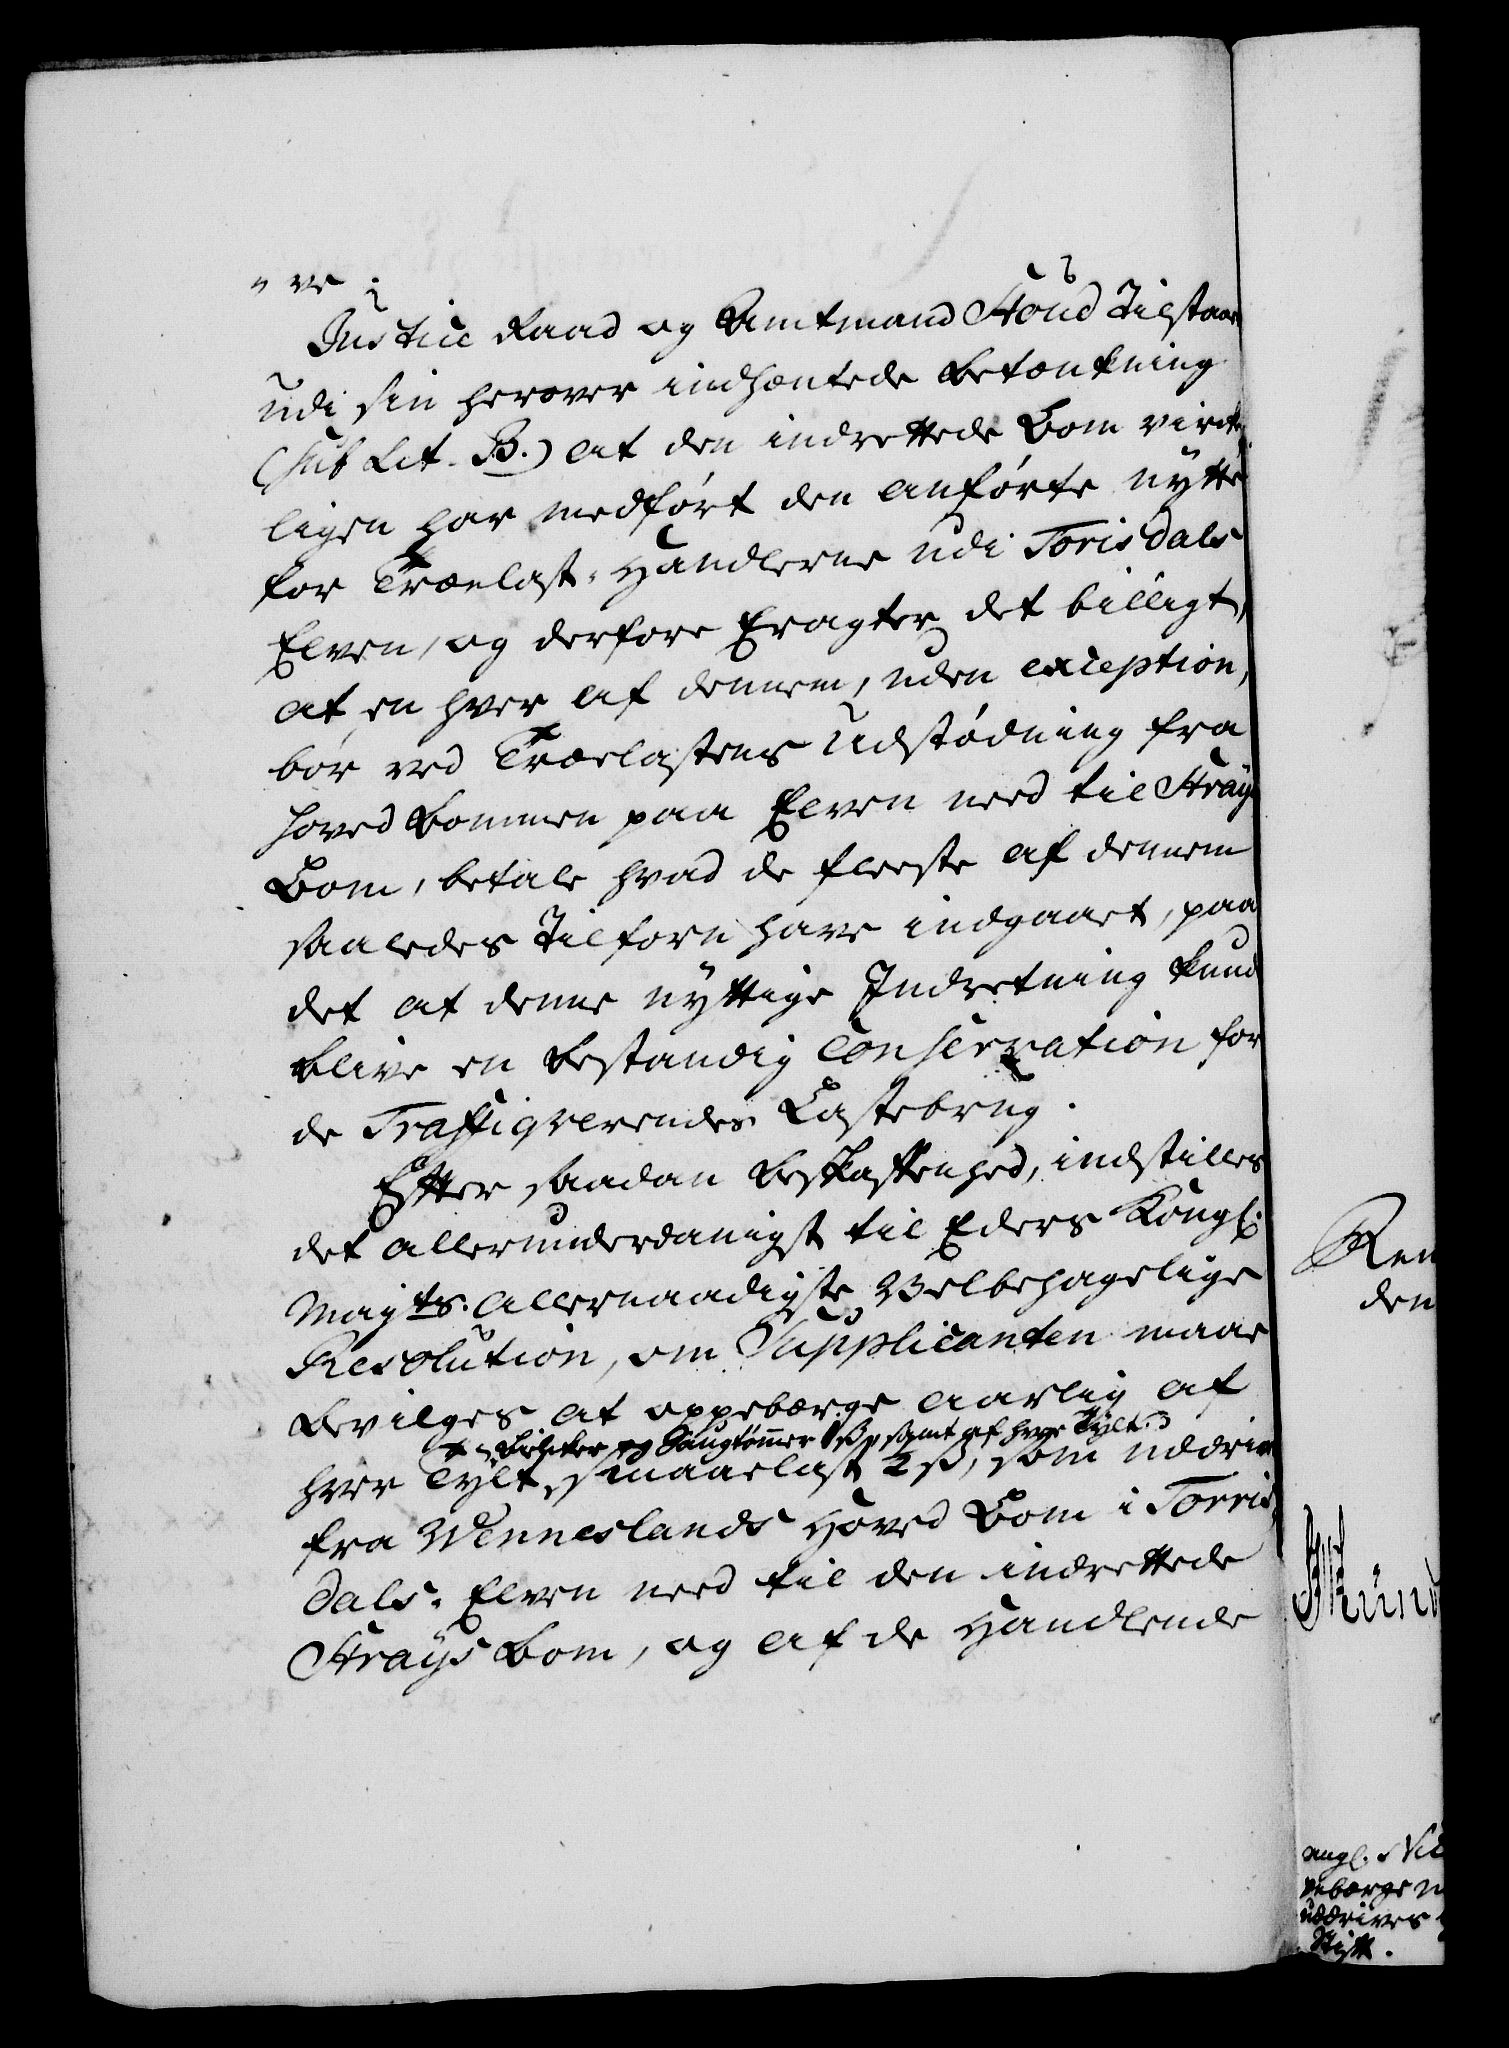 "ve;
Justice Raad og Amtmand Stoud tilstaar
udi sin herover indhentede betænkning
(sub Lit. B.) at den indrettede Bom virke,
ligen har medført den anførte nytte
for Trælast-Handlerne udi Torisdals
Elven, og derfore Eragter det billigt,
at en hver af dennem, uden exception,
bør ved Trælastens Udstødning fra
hoved bommen paa Elven need til Strays
Bom, betale hvad de fleeste af dennem
saaledes tilforn have indgaaet, paa
det at denne nyttige Indretning kunde
blive en bestandig Conservation for
de Traffiqverendes Lastebrug.
Efter saadan beskaffenhed, indstilles
det allerunderdanigst til Eders Kongl:
Mayts. allernaadigste Velbehagelige
Resolution, om Supplicanten maae
bevilges at oppebærge aarlig af
Bielker og Saugtømmer 1 ß, samt af hver Tylt
hver Tylt smaaelast 2 ß, som uddrives
fra Wenneslands Hoved Bom i Torris,
dals-Elven need til den indrettede
Strays bom, og af de Handlende
Ren
den
ebærge
uddrives
Stift.